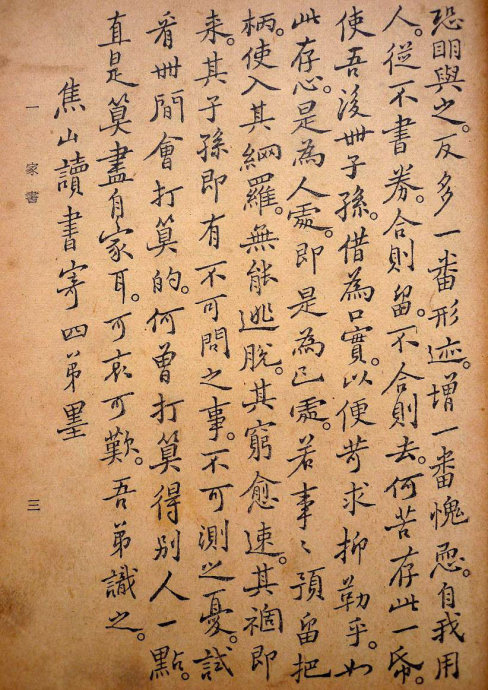 恐明與之。反多一番形迹。增一番愧恧。自我用
人。從不書券。合則留。不合則去。何苦存此一帋。
使吾後丗子孫。借為口實。以便苛求抑勒乎。如
此存心。是為人處。即是為己處。若事〻預留把
柄。使入其網羅。無能逃脫。其窮愈速。其禍即
来。其子孫即有不可問之事。不可測之憂。試
看丗間會打算的。何曾打算得別人一點。
直是算盡自家耳。可哀可歎。吾弟識之。
焦山讀書寄四弟墨
一 家書 三